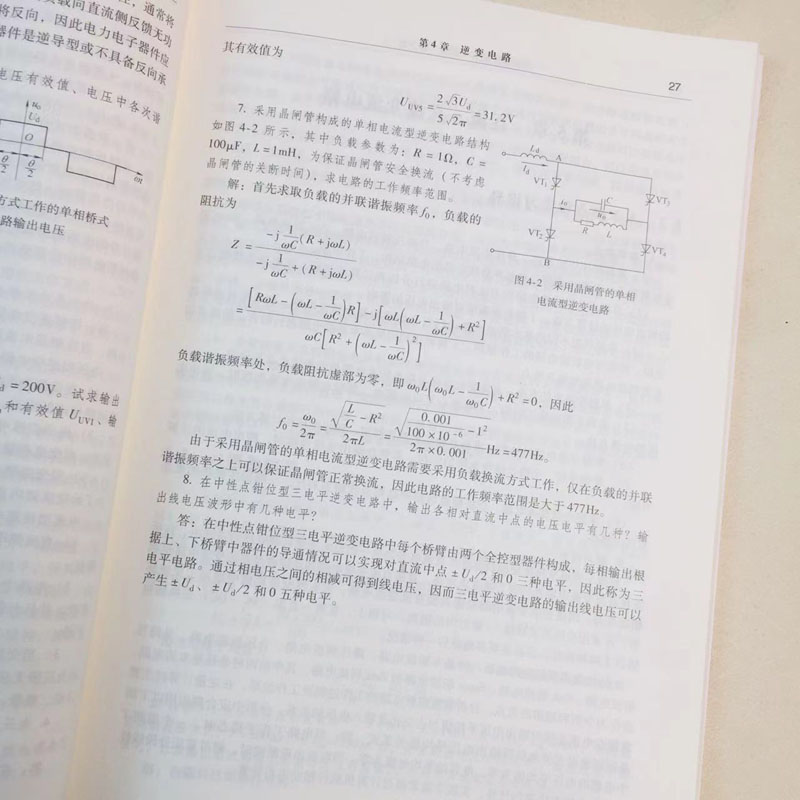 载向直流侧反馈无功
将反向，因此电力电子器件应
器件是逆导型或不具备反向承
电压有效值、电压中各次谐
u₀
U_d
O
θ/2
θ/2
ωt
方式工作的单相桥式
路输出电压
_d = 200V。试求输出
和有效值 U_UV1、输
第4章 逆变电路
27
其有效值为
U_UV5 = 2√3U_d / 5√2π = 31.2V
7. 采用晶闸管构成的单相电流型逆变电路结构
如图 4-2 所示，其中负载参数为：R = 1Ω，C =
100μF，L = 1mH，为保证晶闸管安全换流（不考虑
晶闸管的关断时间），求电路的工作频率范围。
解：首先求取负载的并联谐振频率 f₀，负载的
阻抗为
Z = [-j 1/ωC (R + jωL)] / [-j 1/ωC + (R + jωL)]
= {[RωL - (ωL - 1/ωC)R] - j[ωL(ωL - 1/ωC) + R²]} / {ωC[R² + (ωL - 1/ωC)²]}
L_d
A
I_d
VT₁
VT₃
i₀
C
u₀
R
L
VT₂
VT₄
B
图 4-2 采用晶闸管的单相
电流型逆变电路
负载谐振频率处，负载阻抗虚部为零，即 ω₀L(ω₀L - 1/ω₀C) + R² = 0，因此
f₀ = ω₀/2π = √(L/C - R²) / 2πL = √(0.001/(100×10⁻⁶) - 1²) / (2π×0.001) Hz = 477Hz。
由于采用晶闸管的单相电流型逆变电路需要采用负载换流方式工作，仅在负载的并联
谐振频率之上可以保证晶闸管正常换流，因此电路的工作频率范围是大于 477Hz。
8. 在中性点钳位型三电平逆变电路中，输出各相对直流中点的电压电平有几种？输
出线电压波形中有几种电平？
答：在中性点钳位型三电平逆变电路中每个桥臂由两个全控型器件构成，每相输出根
据上、下桥臂中器件的导通情况可以实现对直流中点 ±U_d/2 和 0 三种电平，因此称为三
电平电路。通过相电压之间的相减可得到线电压，因而三电平逆变电路的输出线电压可以
产生 ±U_d、±U_d/2 和 0 五种电平。